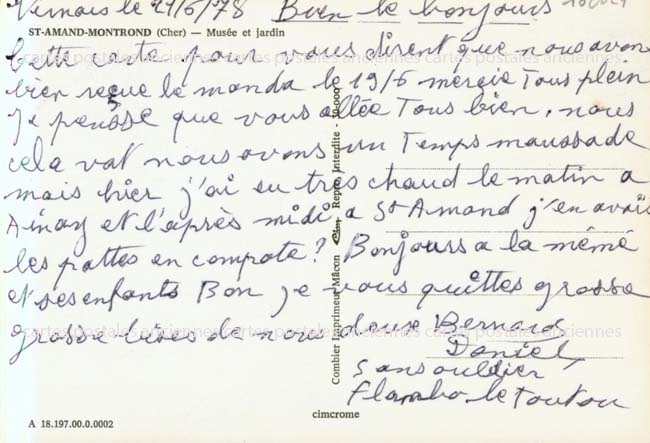 Vernais le 21/6/78 Bien le bonjours
ST-AMAND-MONTROND (Cher) — Musée et jardin
Cette carte pour vous dirent que nous avon
bien reçue le manda le 19/6 mercie Tous plein
je pensse que vous allée Tous bien. nous
cela vat nous avons un Temps maussade
mais hier j'ai eu très chaud le matin a
Ainay et l'après midi a St Amand j'en avais
les pattes en compote? Bonjours a la mémé
et ses enfants Bon je vous quittes grosse
grosse bises de nous deux Bernard
Daniel,
sans oublier
Flambo le toutou
Combier Imprimeur Mâcon
Repro. Interdite
A 18.197.00.0.0002
cimcrome
cartes postales anciennes